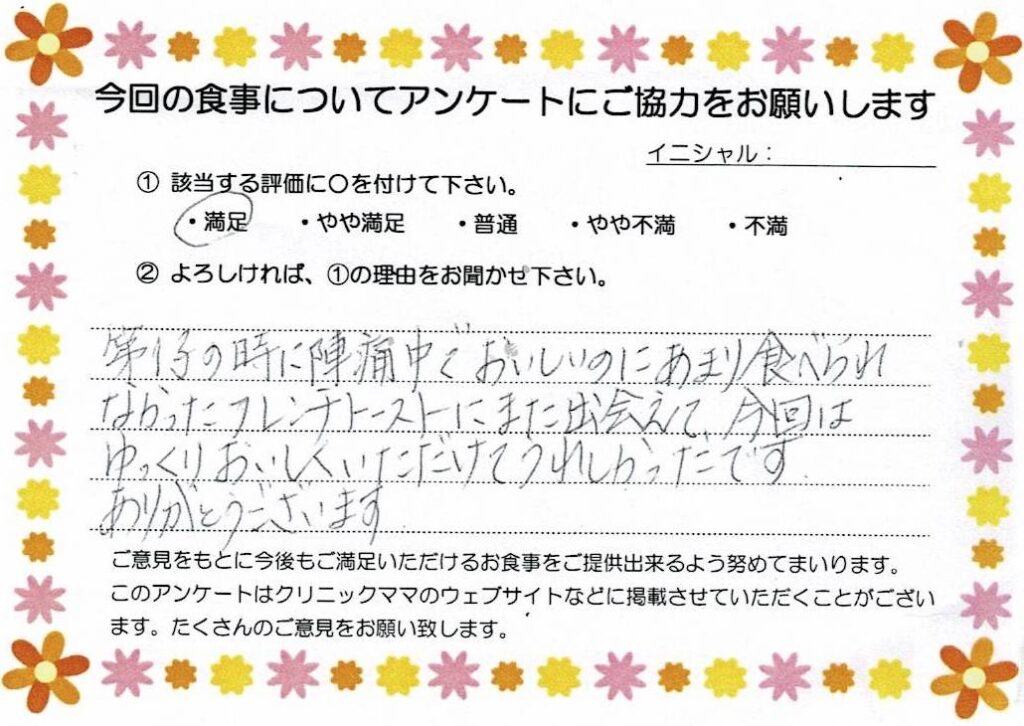 今回の食事についてアンケートにご協力をお願いします
イニシャル：
① 該当する評価に〇を付けて下さい。
・満足 ・やや満足 ・普通 ・やや不満 ・不満
② よろしければ、①の理由をお聞かせ下さい。
第1子の時に陣痛中でおいしいのにあまり食べられ
なかったフレンチトーストにまた出会えて、今回は
ゆっくりおいしくいただけてうれしかったです
ありがとうございます
ご意見をもとに今後もご満足いただけるお食事をご提供出来るよう努めてまいります。
このアンケートはクリニックママのウェブサイトなどに掲載させていただくことがござい
ます。たくさんのご意見をお願い致します。